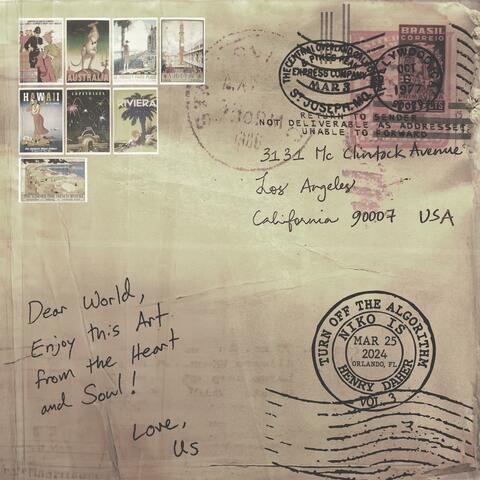 AUSTRALIA
HAWAII
RIVIERA
BRASIL
CORREIO
EXPRESS COMPANY
MAR 3
ST. JOSEPH, MO.
OCT
1977
RETURN TO SENDER
NOT DELIVERABLE AS ADDRESSED
UNABLE TO FORWARD
3131 Mc Clintock Avenue
Los Angeles
California 90007 USA
Dear World,
Enjoy this Art
from the Heart
and Soul!
Love,
Us
TURN OFF THE ALGORITHM
NIKO IS
MAR 25
2024
ORLANDO, FL
HENRY DAHER
VOL. 3